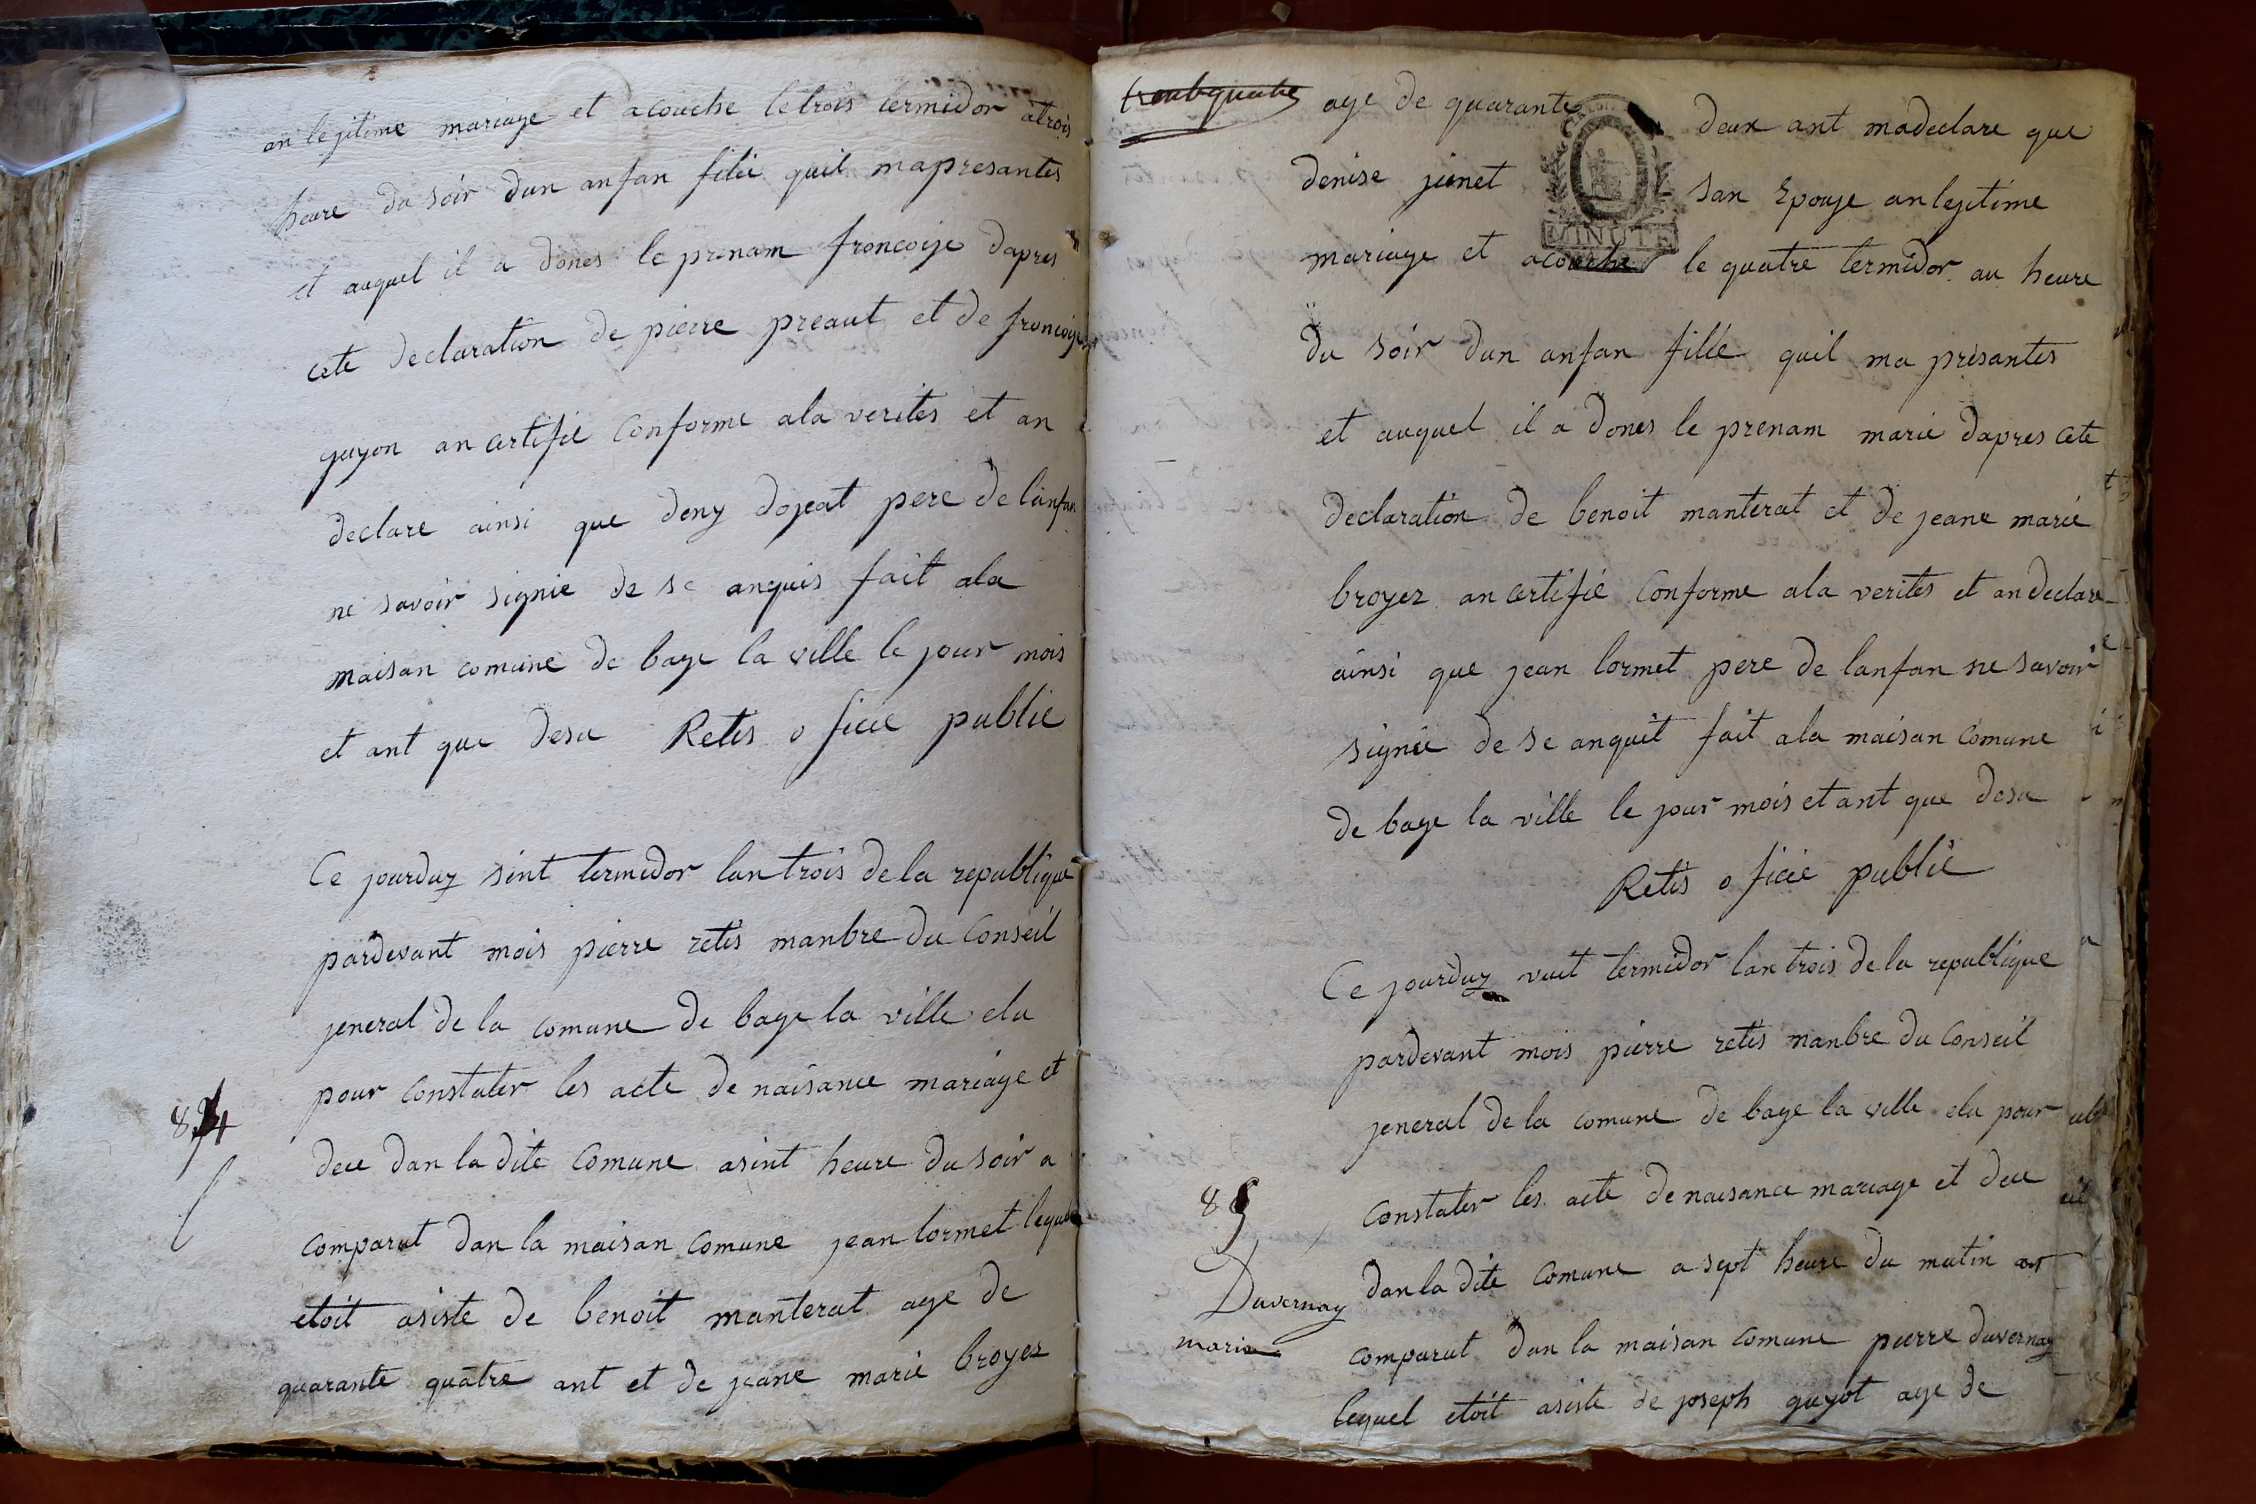 an legitime mariage et acouche le trois termidor atrois
heure du soir dun anfan filie quil mapresantes
et auquel il a dones le prenam francoise dapres
cete declaration de pierre preaut et de francoise
guyon an certifié conforme ala verites et an
declare ainsi que deny dojeat pere de lanfan
ne savoir signie de se anquis fait ala
maisan comune de bage la ville le jour mois
et ant que desu Retis o ficie publie
Ce jourduy sint termidor lan trois de la republique
pardevant mois pierre retis manbre du Conseil
jeneral de la comune de bage la ville elu
pour constater les acte de naisance mariage et
84
dece dan la dite Comune asint heure du soir a
comparut dan la maisan comune jean lormet lequel
etoit asiste de benoit manterat age de
quarante quatre ant et de jeane marie broyer
trentequatre
age de quarante deux ant madeclare que
MINUTE
denise junet san Epouje an legitime
mariage et acouche le quatre termidor au heure
du soir dun anfan fille quil ma presantes
et auquel il a dones le prenam marie dapres cete
declaration de benoit manterat et de jeane marie
broyer an certifié Conforme ala verites et an declare
ainsi que jean lormet pere de lanfan ne savoir
signie de se anquit fait ala maisan comune
de bage la ville le jour mois et ant que desu
Retis o ficie publie
Ce jourduy vuit termidor lan trois de la republique
pardevant mois pierre retis manbre du Conseil
jeneral de la comune de bage la ville elu pour
85
constater les acte de naisance mariage et dece
Duvernay
marie
dan la dite comune a sept heure du matin
comparut dan la maisan comune pierre duvernay
lequel etoit asiste de joseph guyot age de